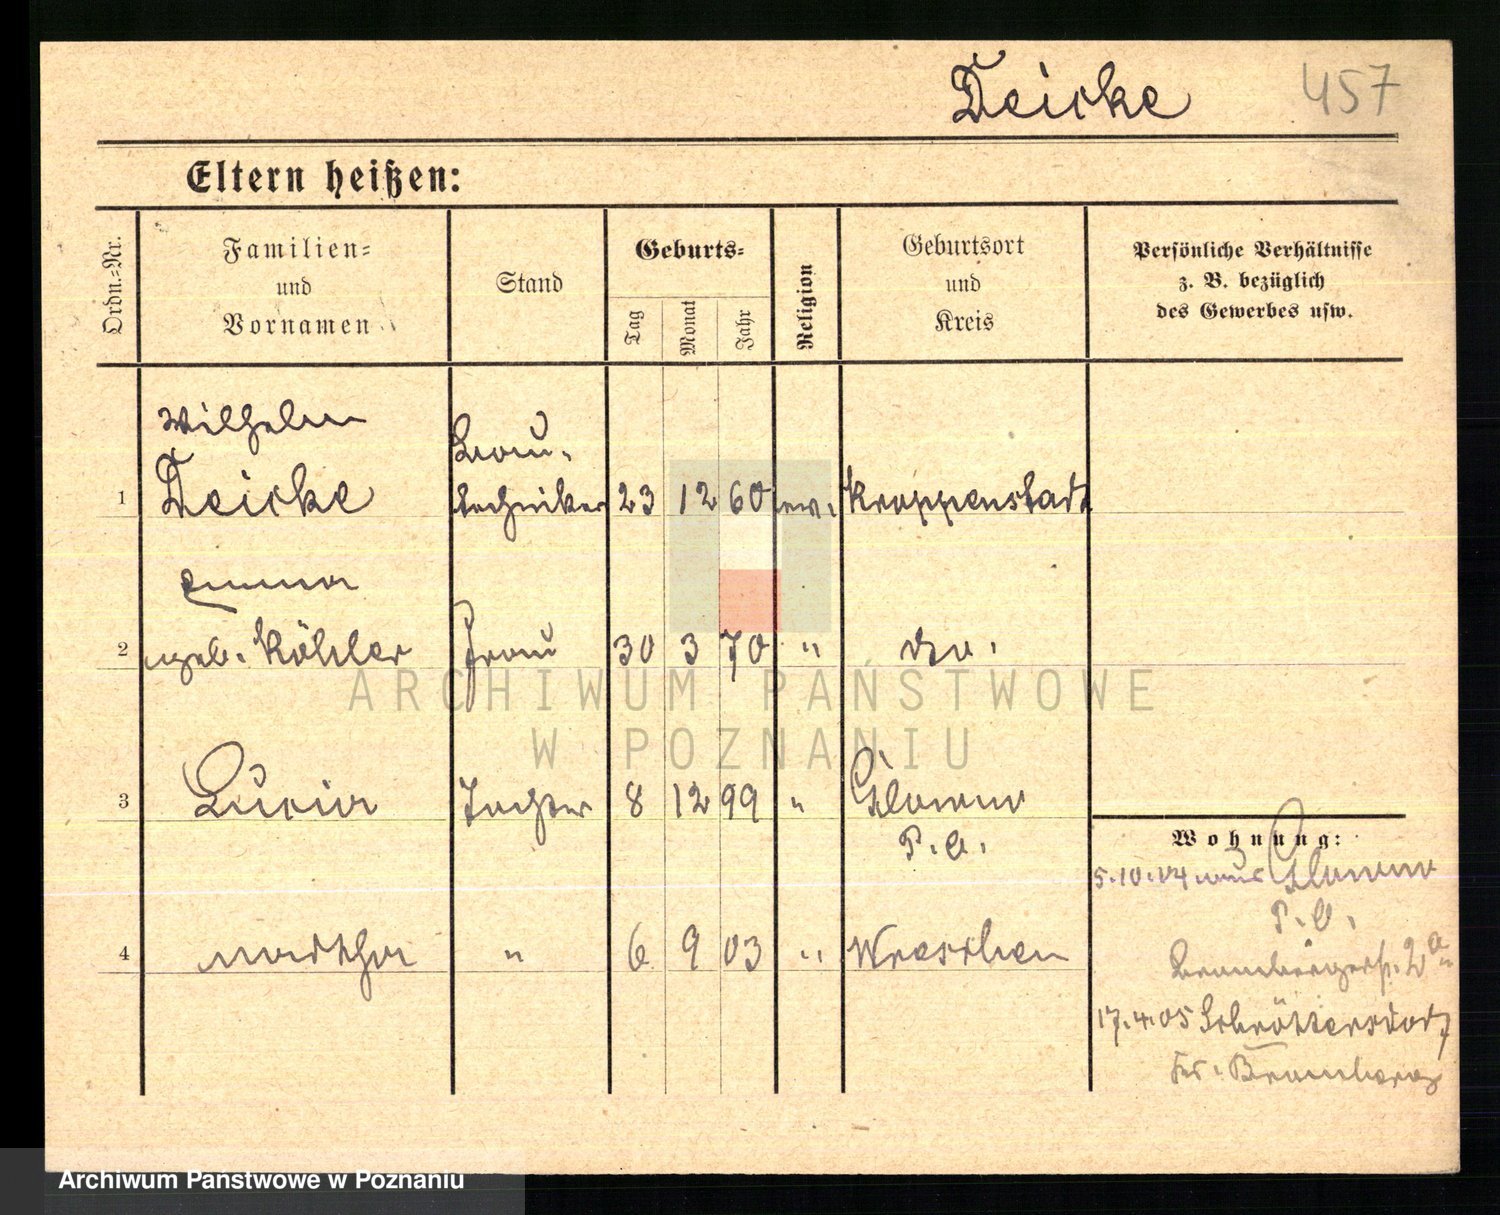 Deicke 457
Eltern heißen:
Ordn.-Nr.
Familien-
und
Vornamen
Stand
Geburts-
Tag
Monat
Jahr
Religion
Geburtsort
und
Kreis
Persönliche Verhältnisse
z. B. bezüglich
des Gewerbes usw.
Wilhelm Bau-
1 Deicke techniker 23 12 60 ev. Kroppenstadt
Emma
2 geb. Köhler Frau 30 3 70 " do.
ARCHIWUM PAŃSTWOWE
W POZNANIU
3 Lucia Tochter 8 12 99 " Glowno
P. O.
Wohnung:
5.10.04 aus Glowno
P. O.
4 Martha " 6 9 03 " Wreschen
Brombergerstr. 2a
17.4.05 Schröttersdorf
Kr. Bromberg
Archiwum Państwowe w Poznaniu